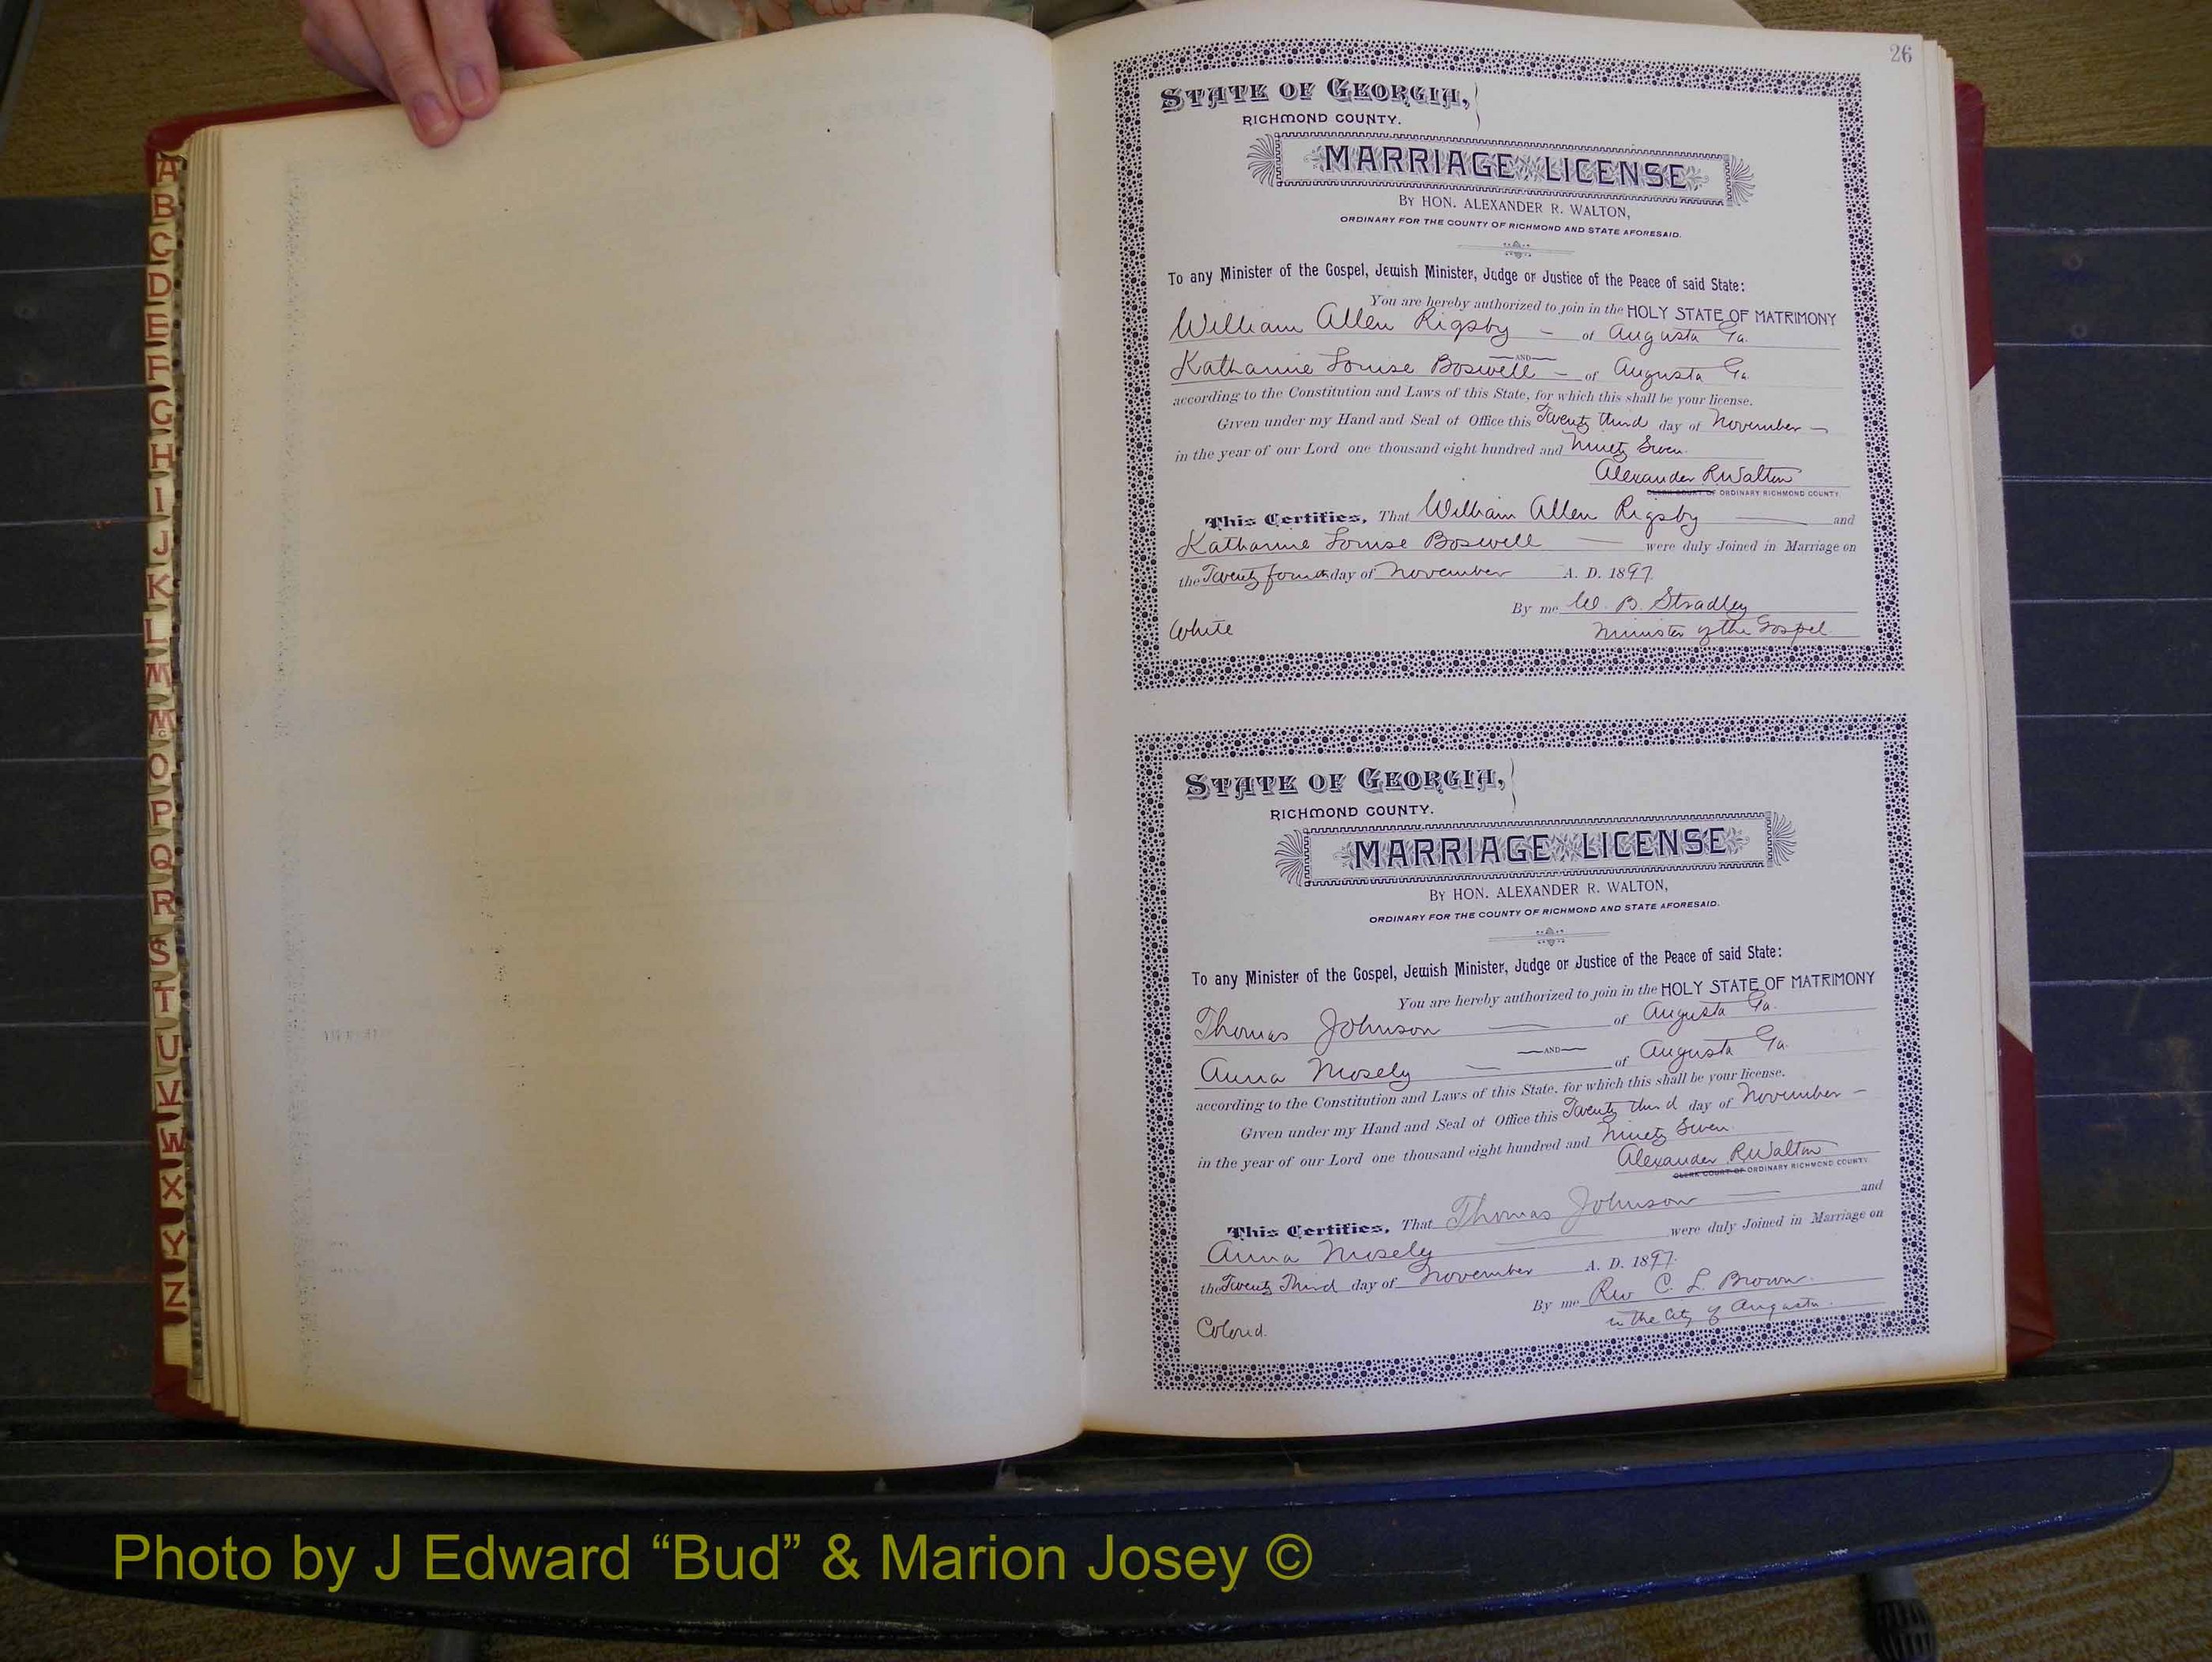 A
B
C
D
E
F
G
H
I
J
K
L
M
Mc
O
P
Q
R
S
T
U
V
W
X
Y
Z
26
STATE OF GEORGIA,
RICHMOND COUNTY.
MARRIAGE LICENSE
BY HON. ALEXANDER R. WALTON,
ORDINARY FOR THE COUNTY OF RICHMOND AND STATE AFORESAID.
To any Minister of the Gospel, Jewish Minister, Judge or Justice of the Peace of said State:
You are hereby authorized to join in the HOLY STATE OF MATRIMONY
William Allen Rigsby – of Augusta Ga.
AND
Katharine Louise Boswell – of Augusta Ga.
according to the Constitution and Laws of this State, for which this shall be your license.
Given under my Hand and Seal of Office this Twenty third day of November –
in the year of our Lord one thousand eight hundred and Ninety Seven.
Alexander R Walton
CLERK COURT OF ORDINARY RICHMOND COUNTY
This Certifies, That William Allen Rigsby — and
Katharine Louise Boswell — were duly Joined in Marriage on
the Twenty fourth day of November A. D. 1897.
By me W. B. Stradley
White Minister of the Gospel
STATE OF GEORGIA,
RICHMOND COUNTY.
MARRIAGE LICENSE
BY HON. ALEXANDER R. WALTON,
ORDINARY FOR THE COUNTY OF RICHMOND AND STATE AFORESAID.
To any Minister of the Gospel, Jewish Minister, Judge or Justice of the Peace of said State:
You are hereby authorized to join in the HOLY STATE OF MATRIMONY
Thomas Johnson — of Augusta Ga.
AND
Anna Mosely — of Augusta Ga.
according to the Constitution and Laws of this State, for which this shall be your license.
Given under my Hand and Seal of Office this Twenty third day of November –
in the year of our Lord one thousand eight hundred and Ninety Seven.
Alexander R Walton
CLERK COURT OF ORDINARY RICHMOND COUNTY
This Certifies, That Thomas Johnson — and
Anna Mosely — were duly Joined in Marriage on
the Twenty Third day of November A. D. 1897.
By me Rev C. L. Brown.
Colored. in the City of Augusta.
Photo by J Edward “Bud” & Marion Josey ©